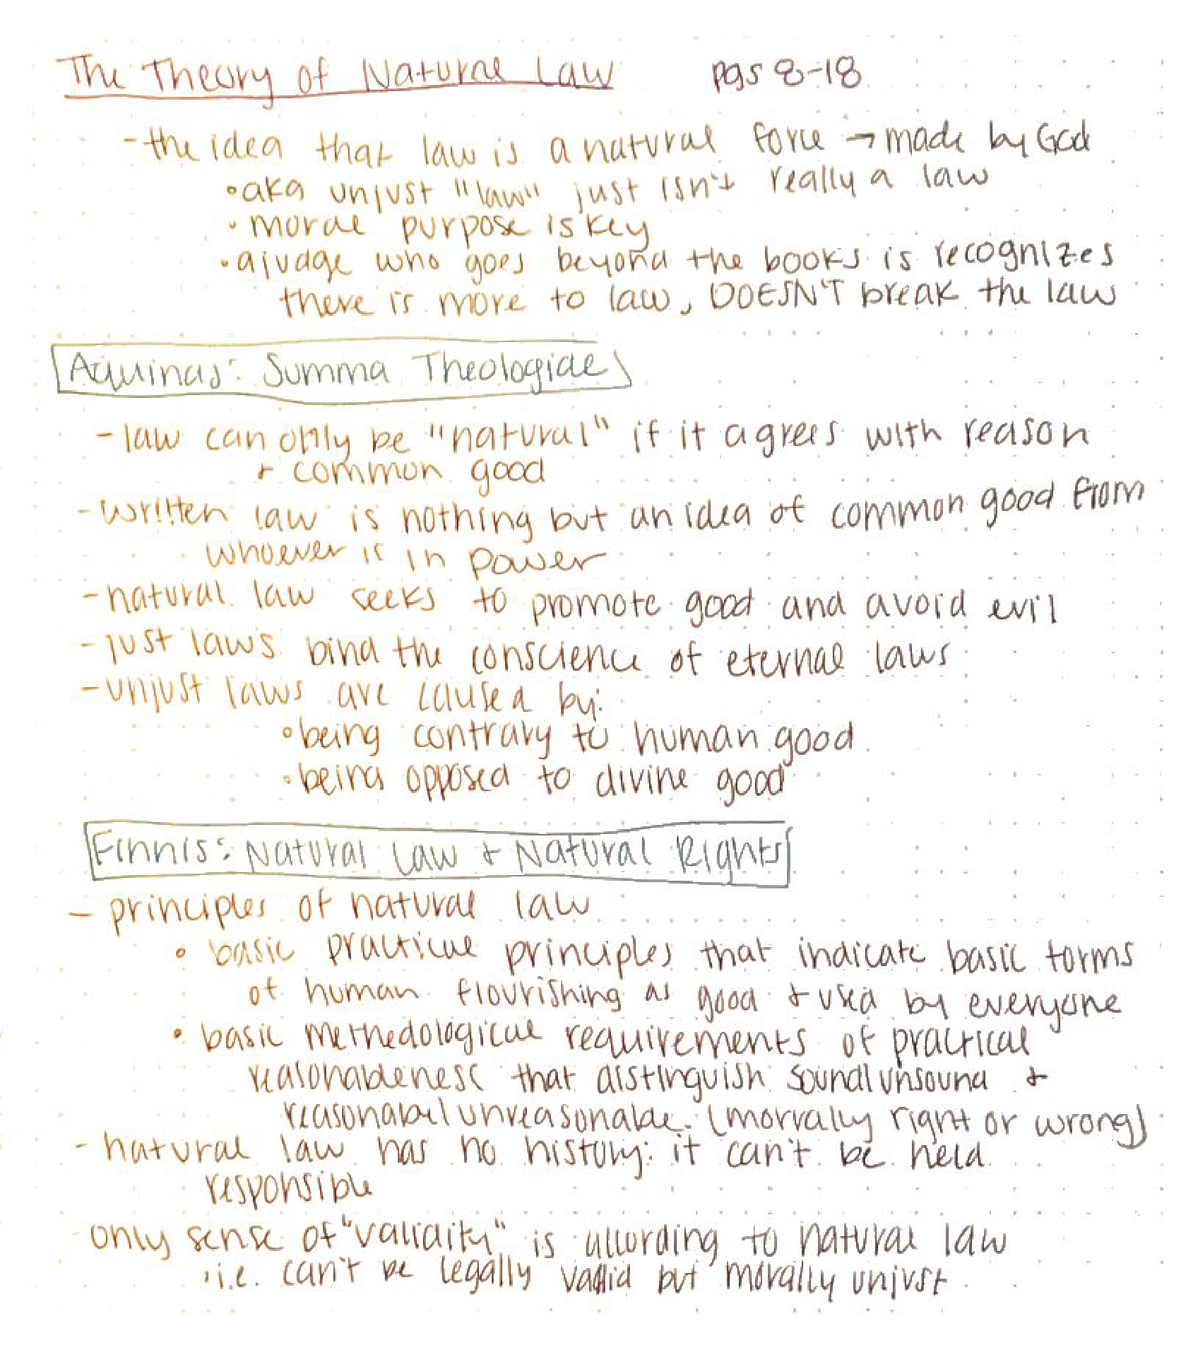 The Theory of Natural Law pgs 8-18
- the idea that law is a natural force → made by God
• aka unjust "law" just isn't really a law
• moral purpose is key
• a judge who goes beyond the books is recognizes
there is more to law, DOESN'T break the law
Aquinas: Summa Theologiae
- law can only be "natural" if it agrees with reason
+ common good
- written law is nothing but an idea of common good from
whoever is in power
- natural law seeks to promote good and avoid evil
- just laws bind the conscience of eternal laws
- unjust laws are caused by:
• being contrary to human good
• being opposed to divine good
Finnis: Natural Law + Natural Rights
- principles of natural law
• basic practical principles that indicate basic forms
of human flourishing as good + used by everyone
• basic methedological requirements of practical
reasonableness that distinguish sound/unsound +
reasonabel/unreasonable. (morrally right or wrong)
- natural law has no history: it can't be held
responsible
only sense of "validity" is according to natural law
• i.e. can't be legally valid but morally unjust